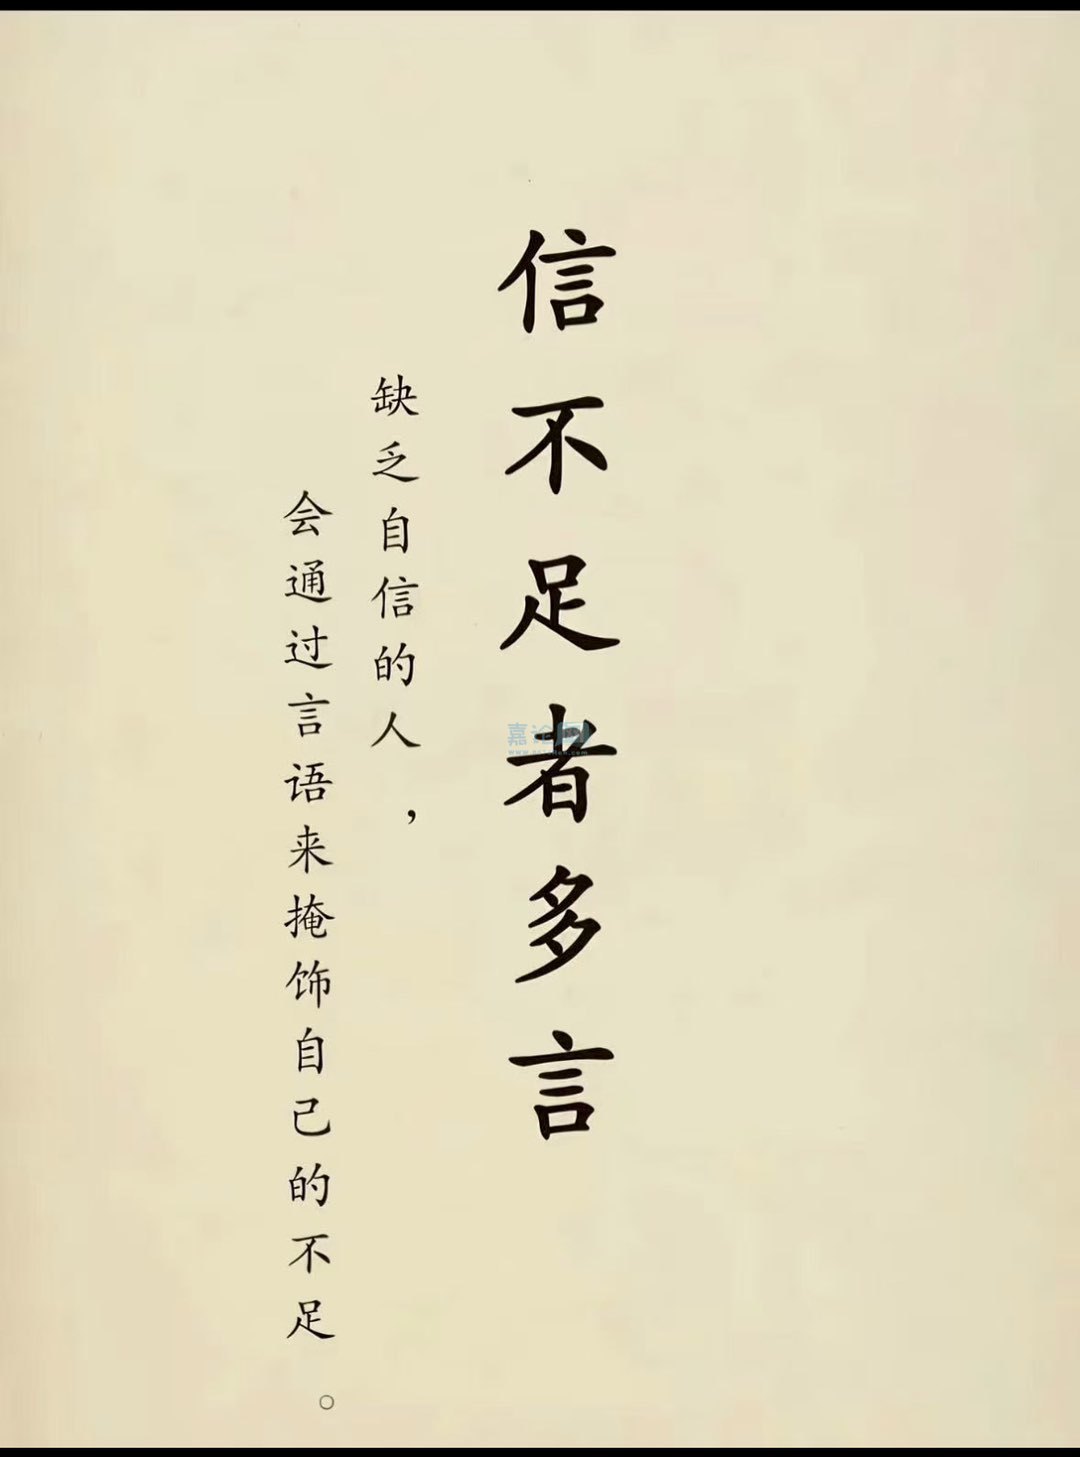 信不足者多言
缺乏自信的人，
会通过言语来掩饰自己的不足。